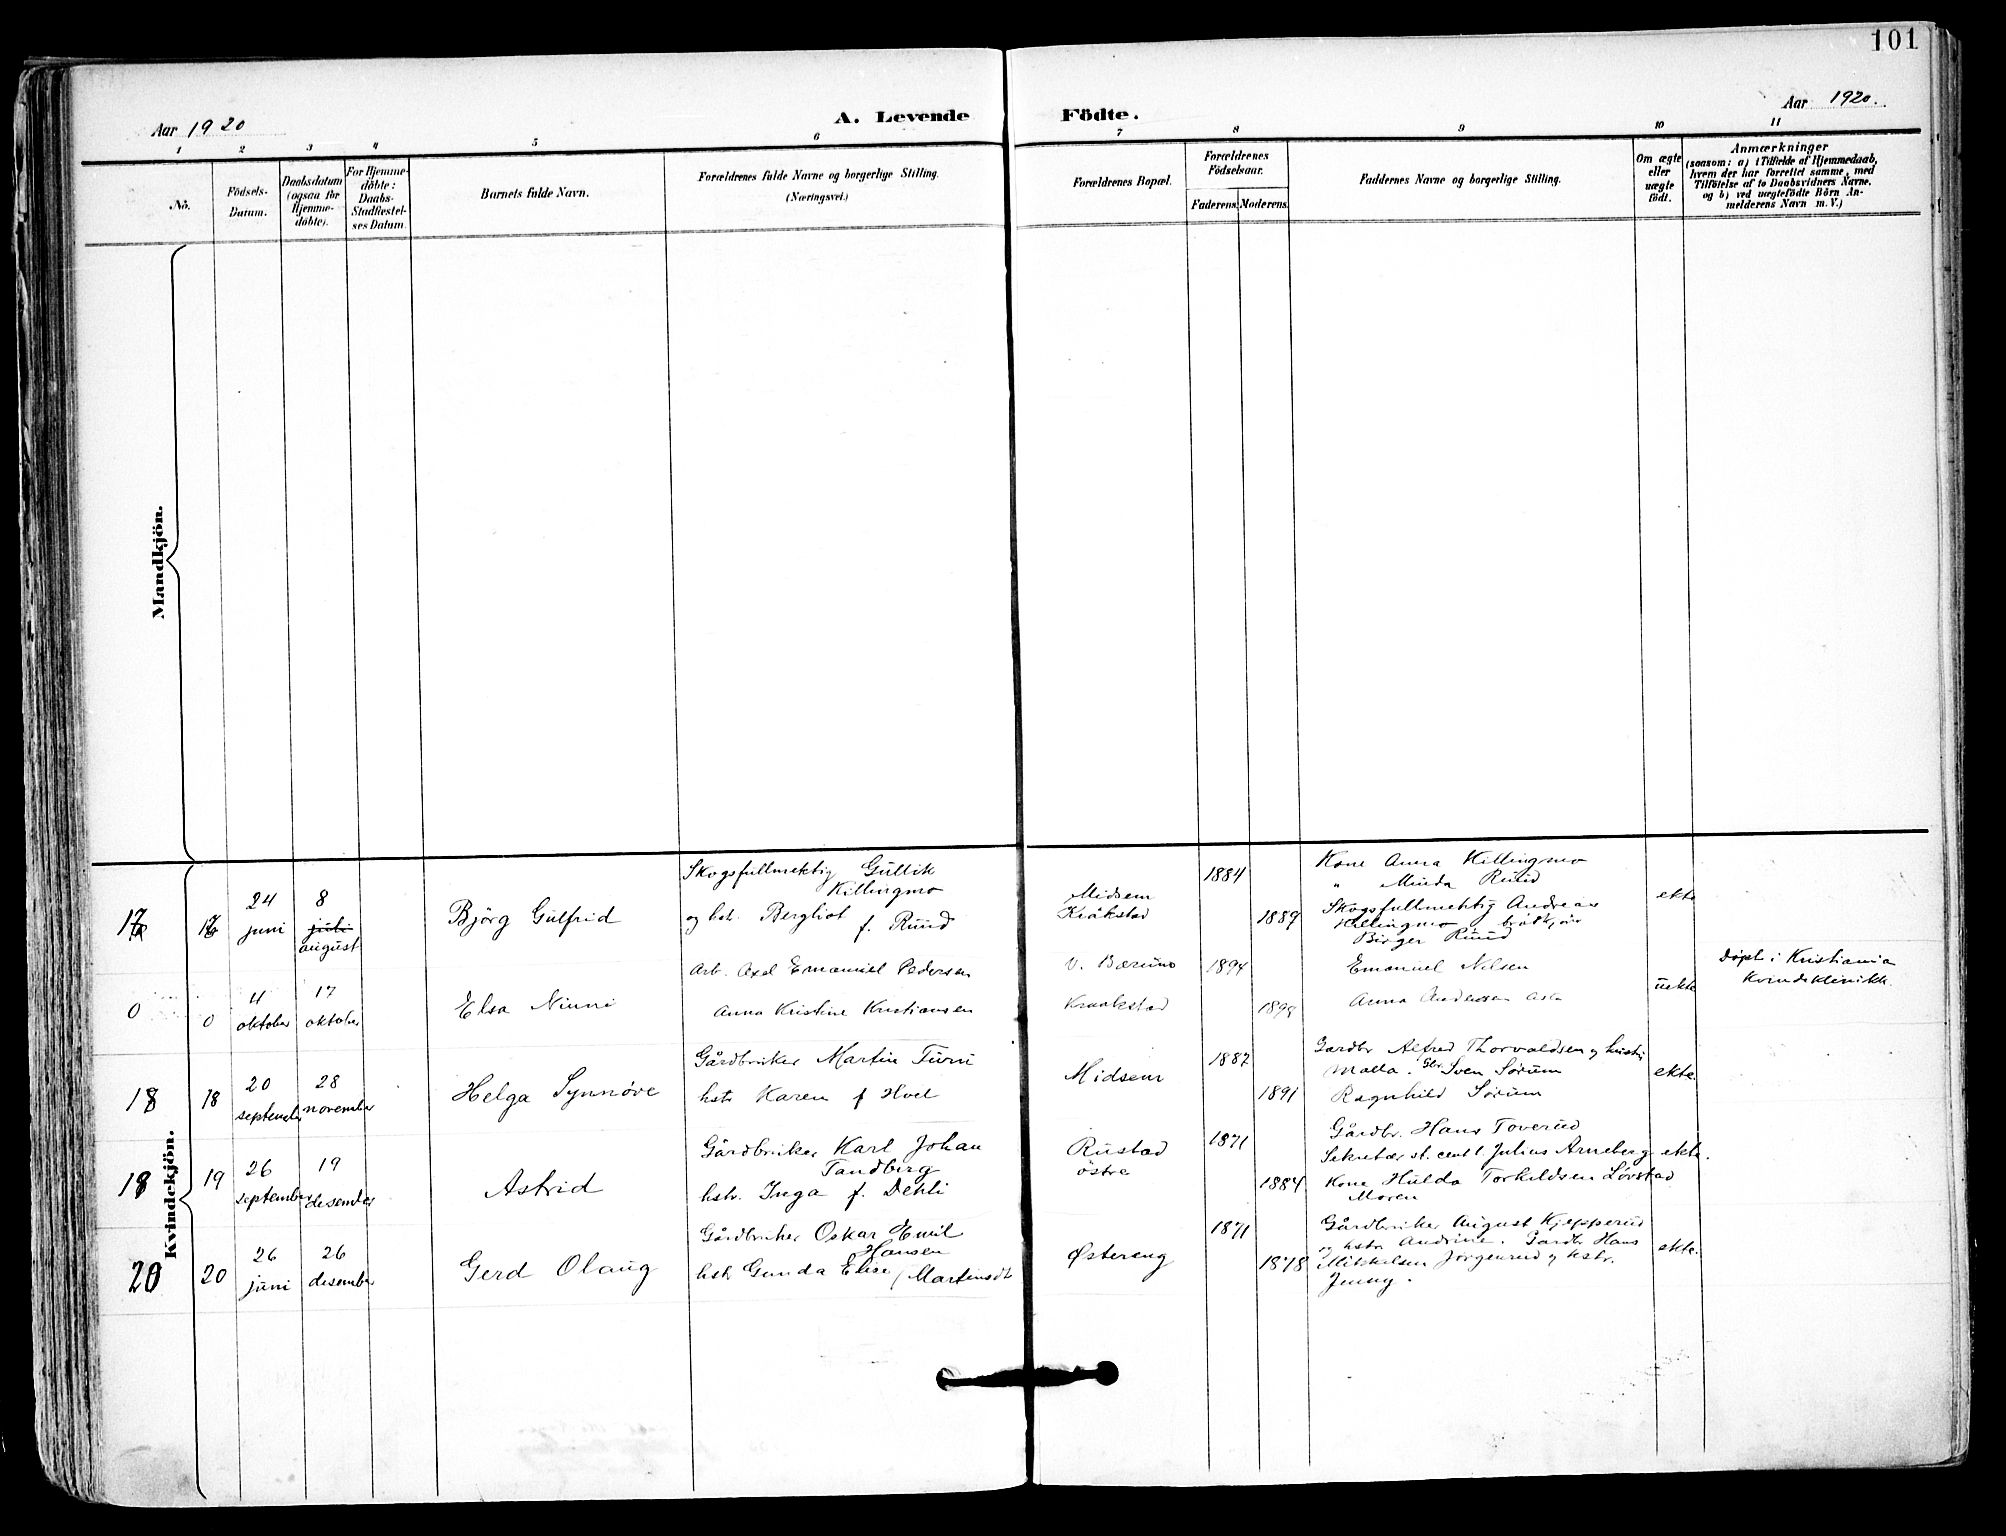 101
Aar 1920
A. Levende Födte.
Aar 1920.
1 2 3 4 5 6 7 8 9 10 11
No.
Födsels-
Datum.
Daabsdatum
(ogsaa for
Hjemme-
döbte).
For Hjemme-
döbte:
Daabs-
Stadfæstel-
ses Datum.
Barnets fulde Navn.
Forældrenes fulde Navne og borgerlige Stilling.
(Næringsvei.)
Forældrenes Bopæl.
Forældrenes
Födselsaar.
Faderens. Moderens.
Faddernes Navne og borgerlige Stilling.
Om ægte
eller
uægte
födt.
Anmærkninger
(saasom: a) i Tilfælde af Hjemmedaab,
hvem der har forrettet samme, med
Tilföielse af to Daabsvidners Navne,
og b) ved uægtefödte Börn An-
melderens Navn m. V.)
Mandkjön.
Kvindekjön.
17 17
24
juni
8
juli
august
Björg Gulfrid
Skogsfullmektig Gullik
Killingmo
og hst. Bergliot f. Ruud
Midsem
Kråkstad
1884
1889
Kone Anna Killingmo
" Minda Ruud
Skogsfullmektig Andreas
Killingmo
Birger Ruud
ekte
0 0
4
oktober
17
oktober
Elsa Ninni
Arb. Axel Emanuel Pedersen
Anna Kristine Kristiansen
V. Bærumo
Kraakstad
1894
1898
Emanuel Nilsen
Anna Andersen
uekte
Døpt i Kristiania
Kvindeklinikk.
18 18
20
september
28
november
Helga Synnöve
Gårdbruker Martin Furu
hstr Karen f Hvel
Midsem
1887
1891
Gardbr Alfred Thorvaldsen og hustru
Malla. Gbr. Sven Sörum
Ragnhild Sörum
ekte.
18 19
26
september
19
desember
Astrid
Gårdbruker Karl Johan
Tandberg
hstr. Inga f. Dehli
Rustad
östre
1871
1884
Gårdbr. Hans Toverud
Sekretær st. centl Julius Arneberg
Kone Hulda Torkildsen Lövstad
Moren
ekte.
20 20
26
juni
26
desember
Gerd Olaug
Gårdbruker Oskar Emil
Hansen
hstr Gunda Elise f Martinsdt
Østereng
1871
1878
Gårdbruker August Kjepperud
og hstr Andrine. Gardbr Hans
Mikkelsen Jörgenrud og hstr.
Jenny.
ekte.